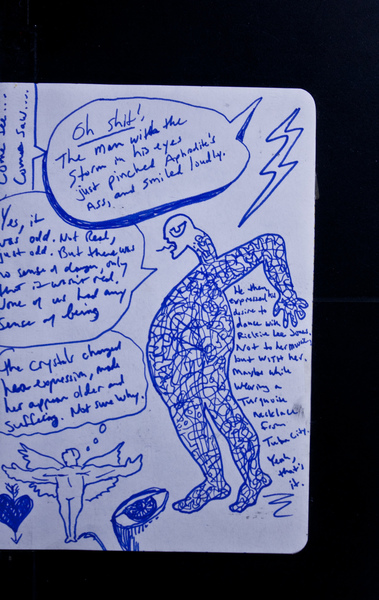 Come see....
Come saw....
Oh shit!
The man with the
storm in his eyes
just pinched Aphrodite's
Ass, and smiled loudly.
Yes, it
was odd. Not Real,
just odd. But there was
no sense of dagon, only
that is was real.
None of us had any
sense of being
The crystals changed
her expression, made
her appear older and
suffering. Not sure why.
He then
expressed his
desire to
dance with
Rickie Lee Jones.
Not to her music
but with her.
Maybe while
wearing a
Turquoise
necklace
from
Tuba City.
Yeah,
that's
it.